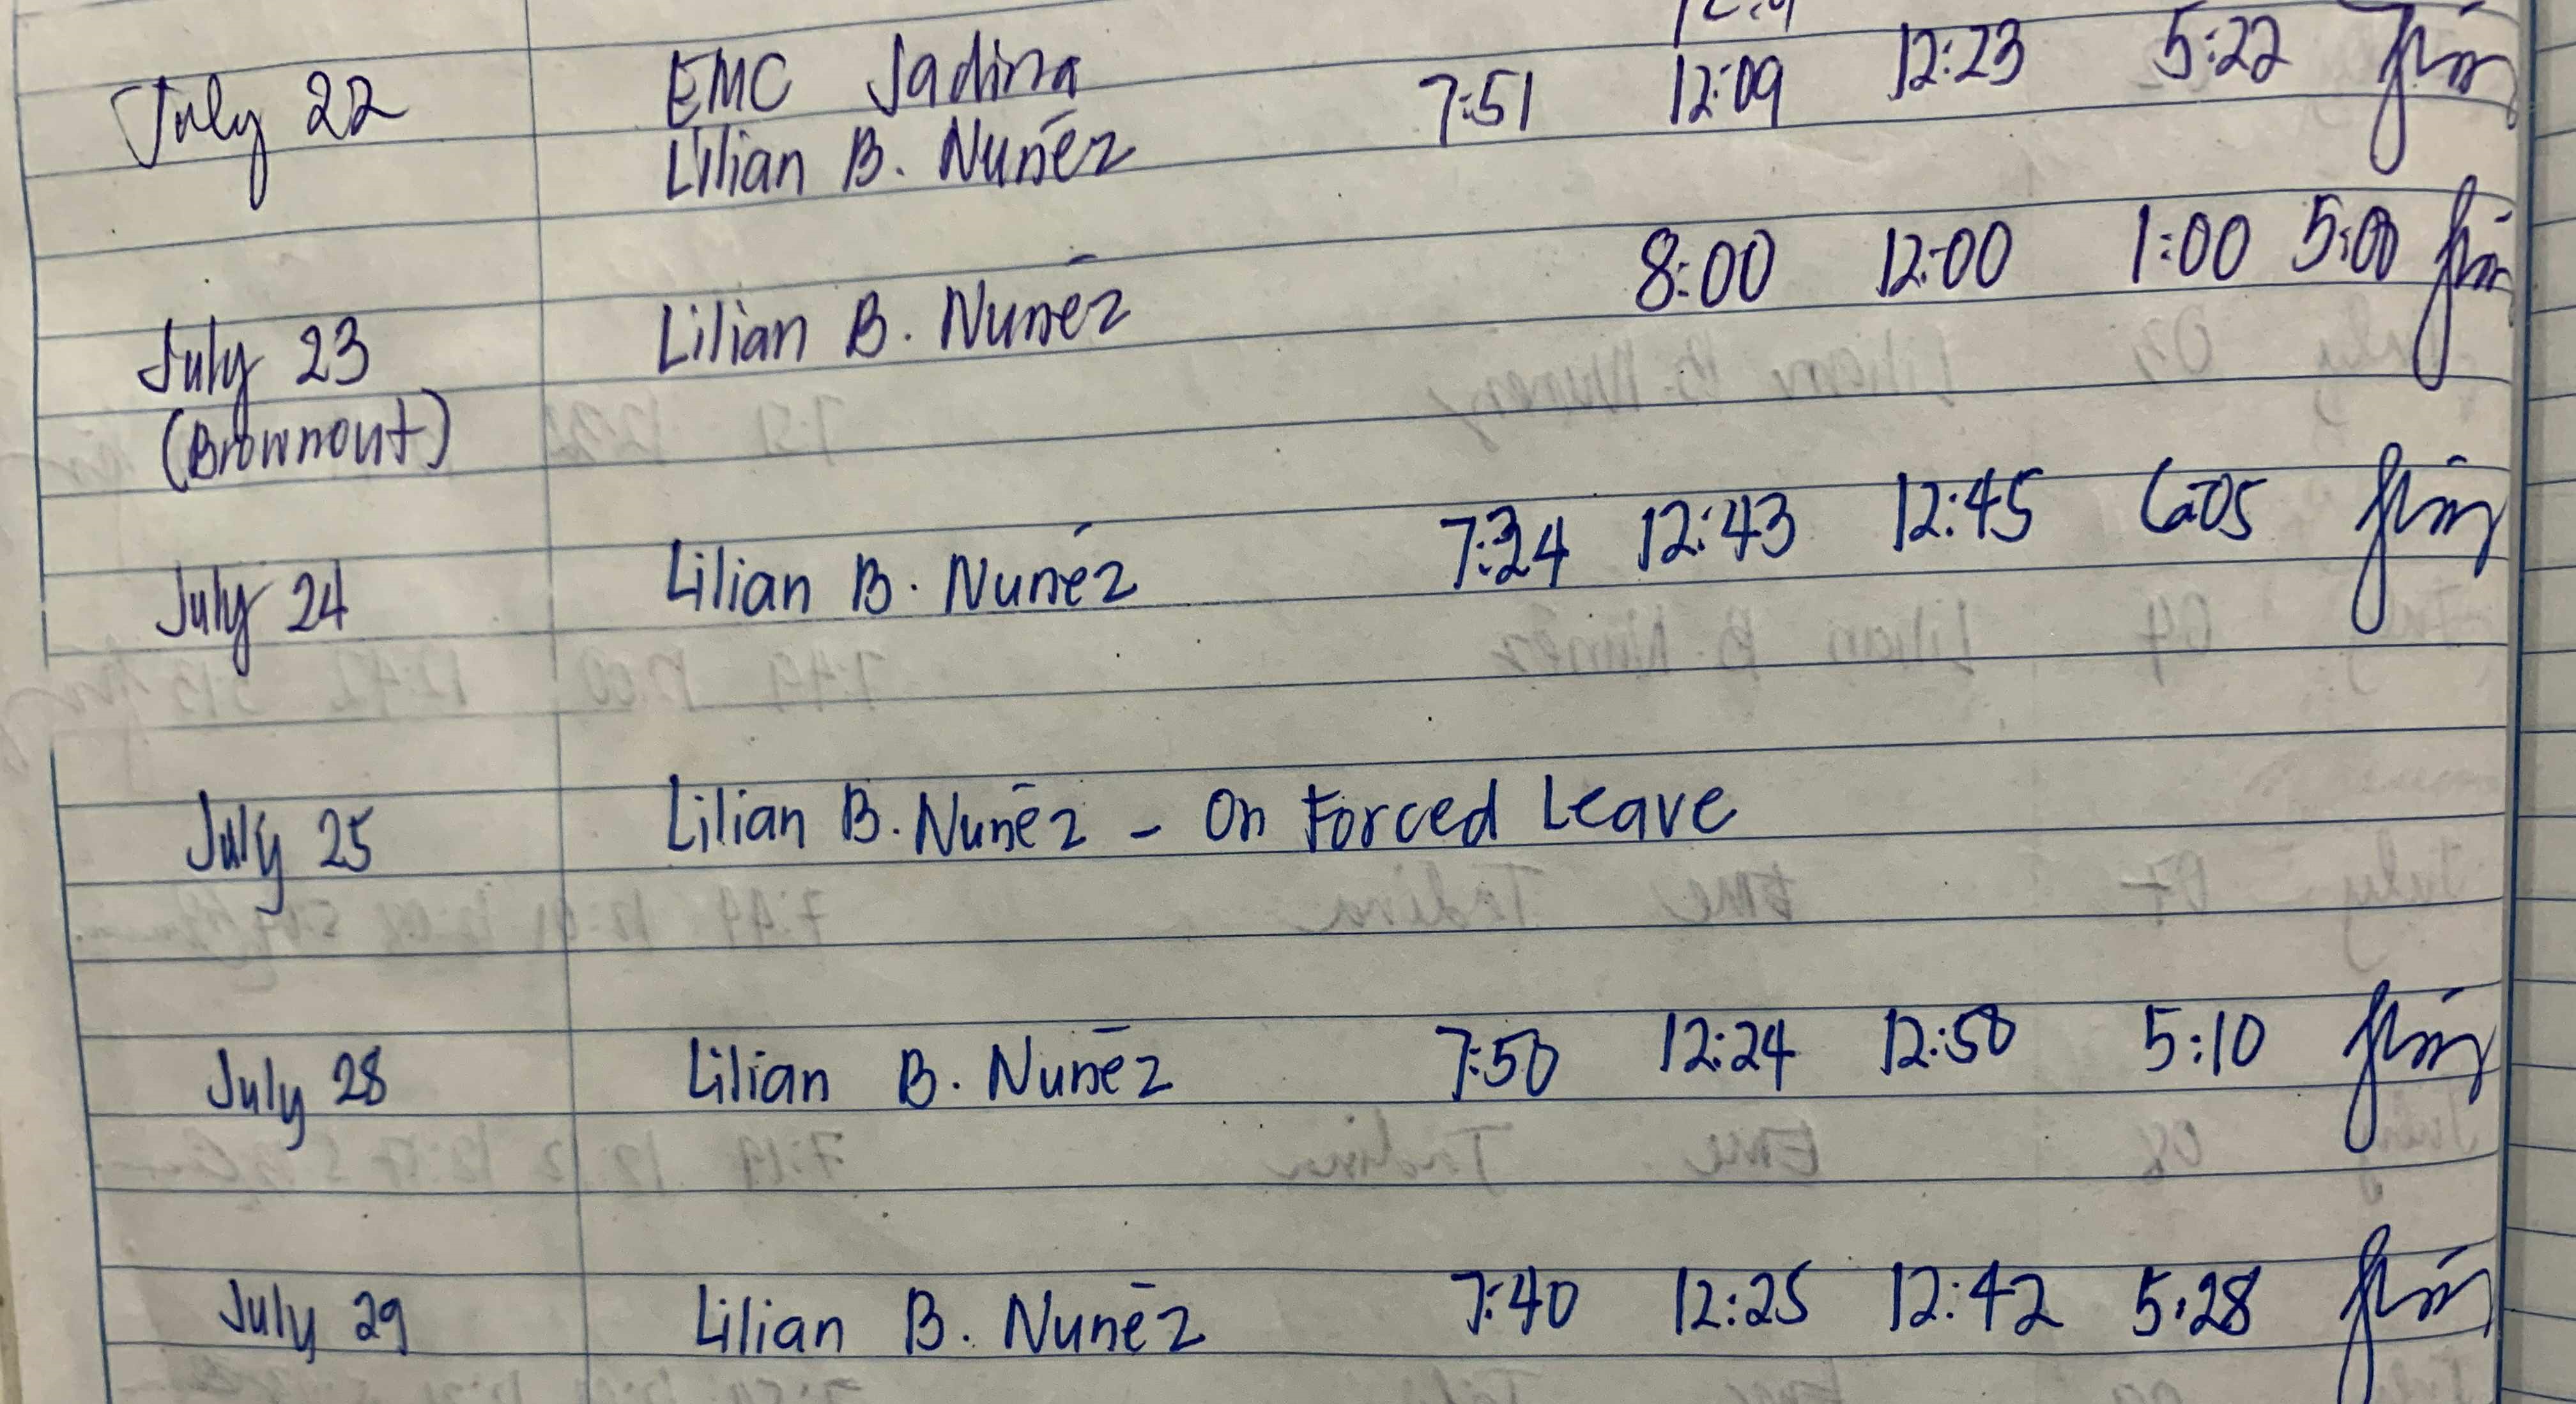 July 22 EMC Jadina 7:51 12:09 12:23 5:22
Lilian B. Nuñez
July 23 Lilian B. Nuñez 8:00 12:00 1:00 5:00
(Brownout)
July 24 Lilian B. Nuñez 12:43 12:45 6:05
July 25 Lilian B. Nuñez - On Forced Leave
July 28 Lilian B. Nuñez 7:50 12:24 12:50 5:10
July 29 Lilian B. Nuñez 7:40 12:25 12:42 5:28